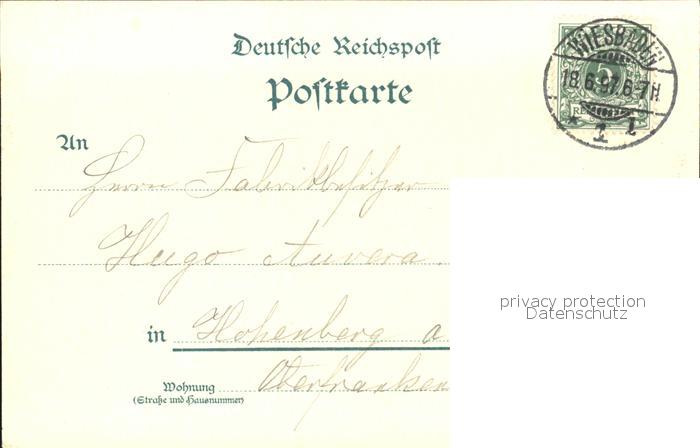 Deutsche Reichspost
Postkarte
WIESBADEN
18.6.97.6-7N
1
An
Herrn Fabrikbesitzer
Hugo Auvera.
privacy protection
Datenschutz
in Hohenberg a
Wohnung Oberfranken
(Straße und Hausnummer)